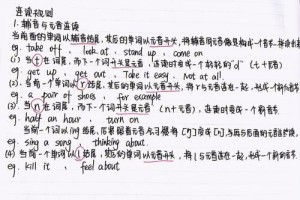 连读规则
1. 辅音与元音连读
当前面的单词以辅音结尾，其后的单词以元音开头，将辅音同元音像是构成一个音节
eg. take off . look at . stand up . come on
(1) 当t在词尾，而下一个词开头是元音，连读时变成一个轻轻的"d" (t+元音)
eg. get up , get out . Take it easy. Not at all.
(2) 当前一个单词以r结尾，其后的单词以元音开头，将r与元音连在一起，形成一个新音节
eg. a pair of shoes . for example
(3) 当n在词尾，而下一个词开头是元音 (n+元音)，连读时变成一个新的音节
eg. half an hour . turn on
当前一个单词以ing结尾，后紧跟着元音
eg. sing a song . thinking about.
(4) 当前一个单词以l结尾，其后的单词以元音开头，将l与元音连在一起，形成一个新的音节
eg. kill it , feel about